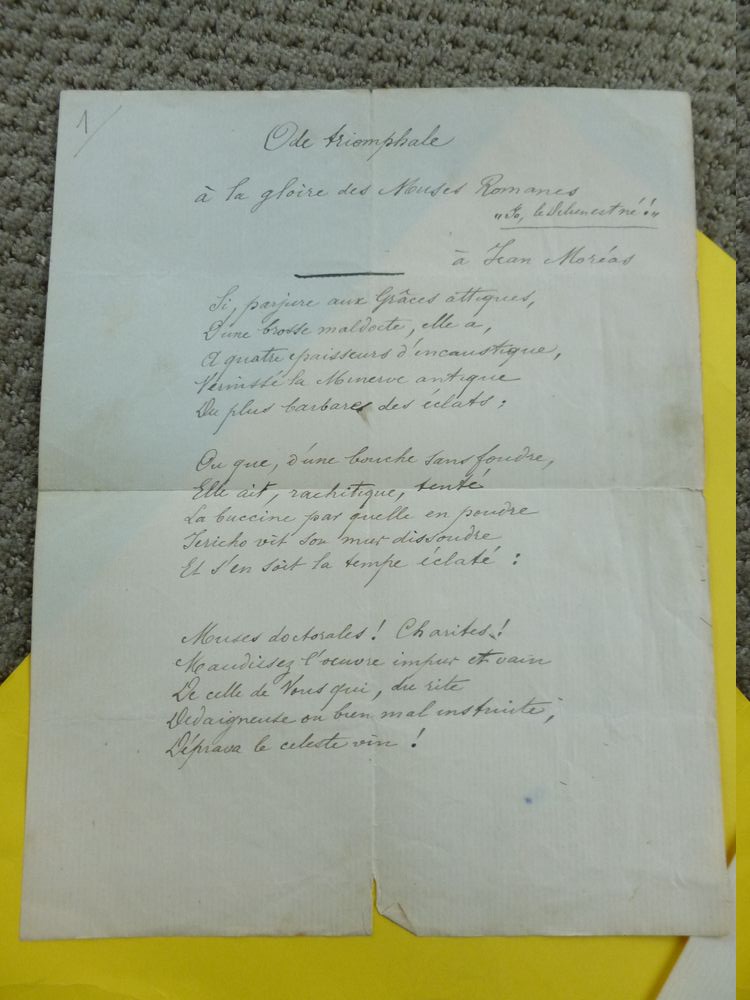 1/
Ode triomphale
à la gloire des Muses Romanes
"Io, le est né!"
à Jean Moréas
Si, parjure aux Grâces attiques,
D'une brosse maldocte, elle a,
A quatre epaisseurs d'encaustique,
Vernissé la Minerve antique
Du plus barbares des éclats;
Ou que, d'une bouche sans foudre,
Elle ait, rachitique, tenté
La buccine par quelle en poudre
Jericho vit son mur dissoudre
Et s'en soit la tempe éclaté:
Muses doctorales! Charites!
Maudissez l'oeuvre impur et vain
De celle de Vous qui, du rite
Dedaigneuse ou bien mal instruite,
Déprava le celeste vin!